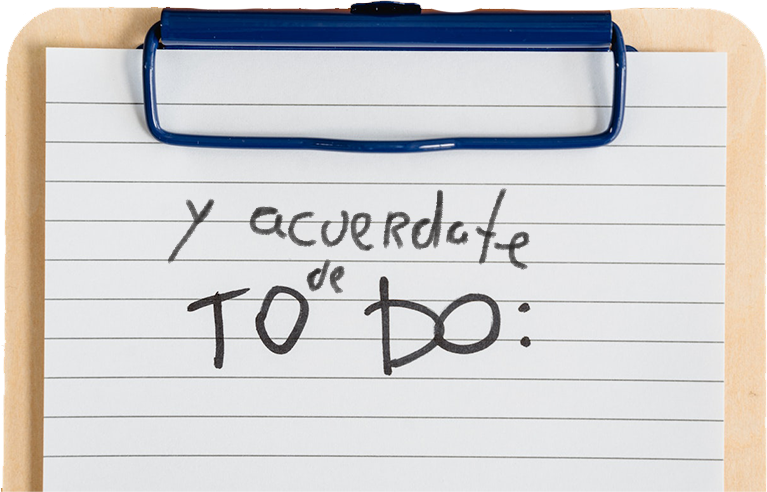 y acuerdate
de
TO DO: